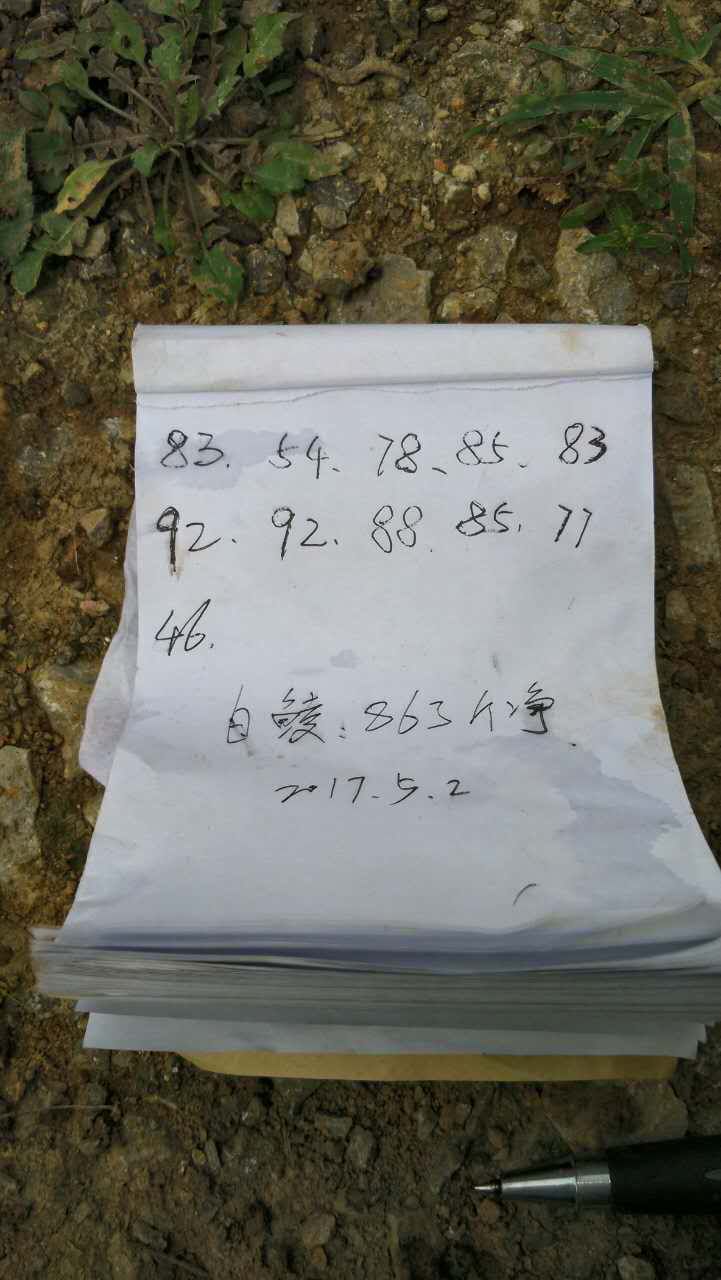 83. 54、78、85. 83
92. 92. 88. 85. 77
46.
白鲮: 863斤净.
2017.5.2